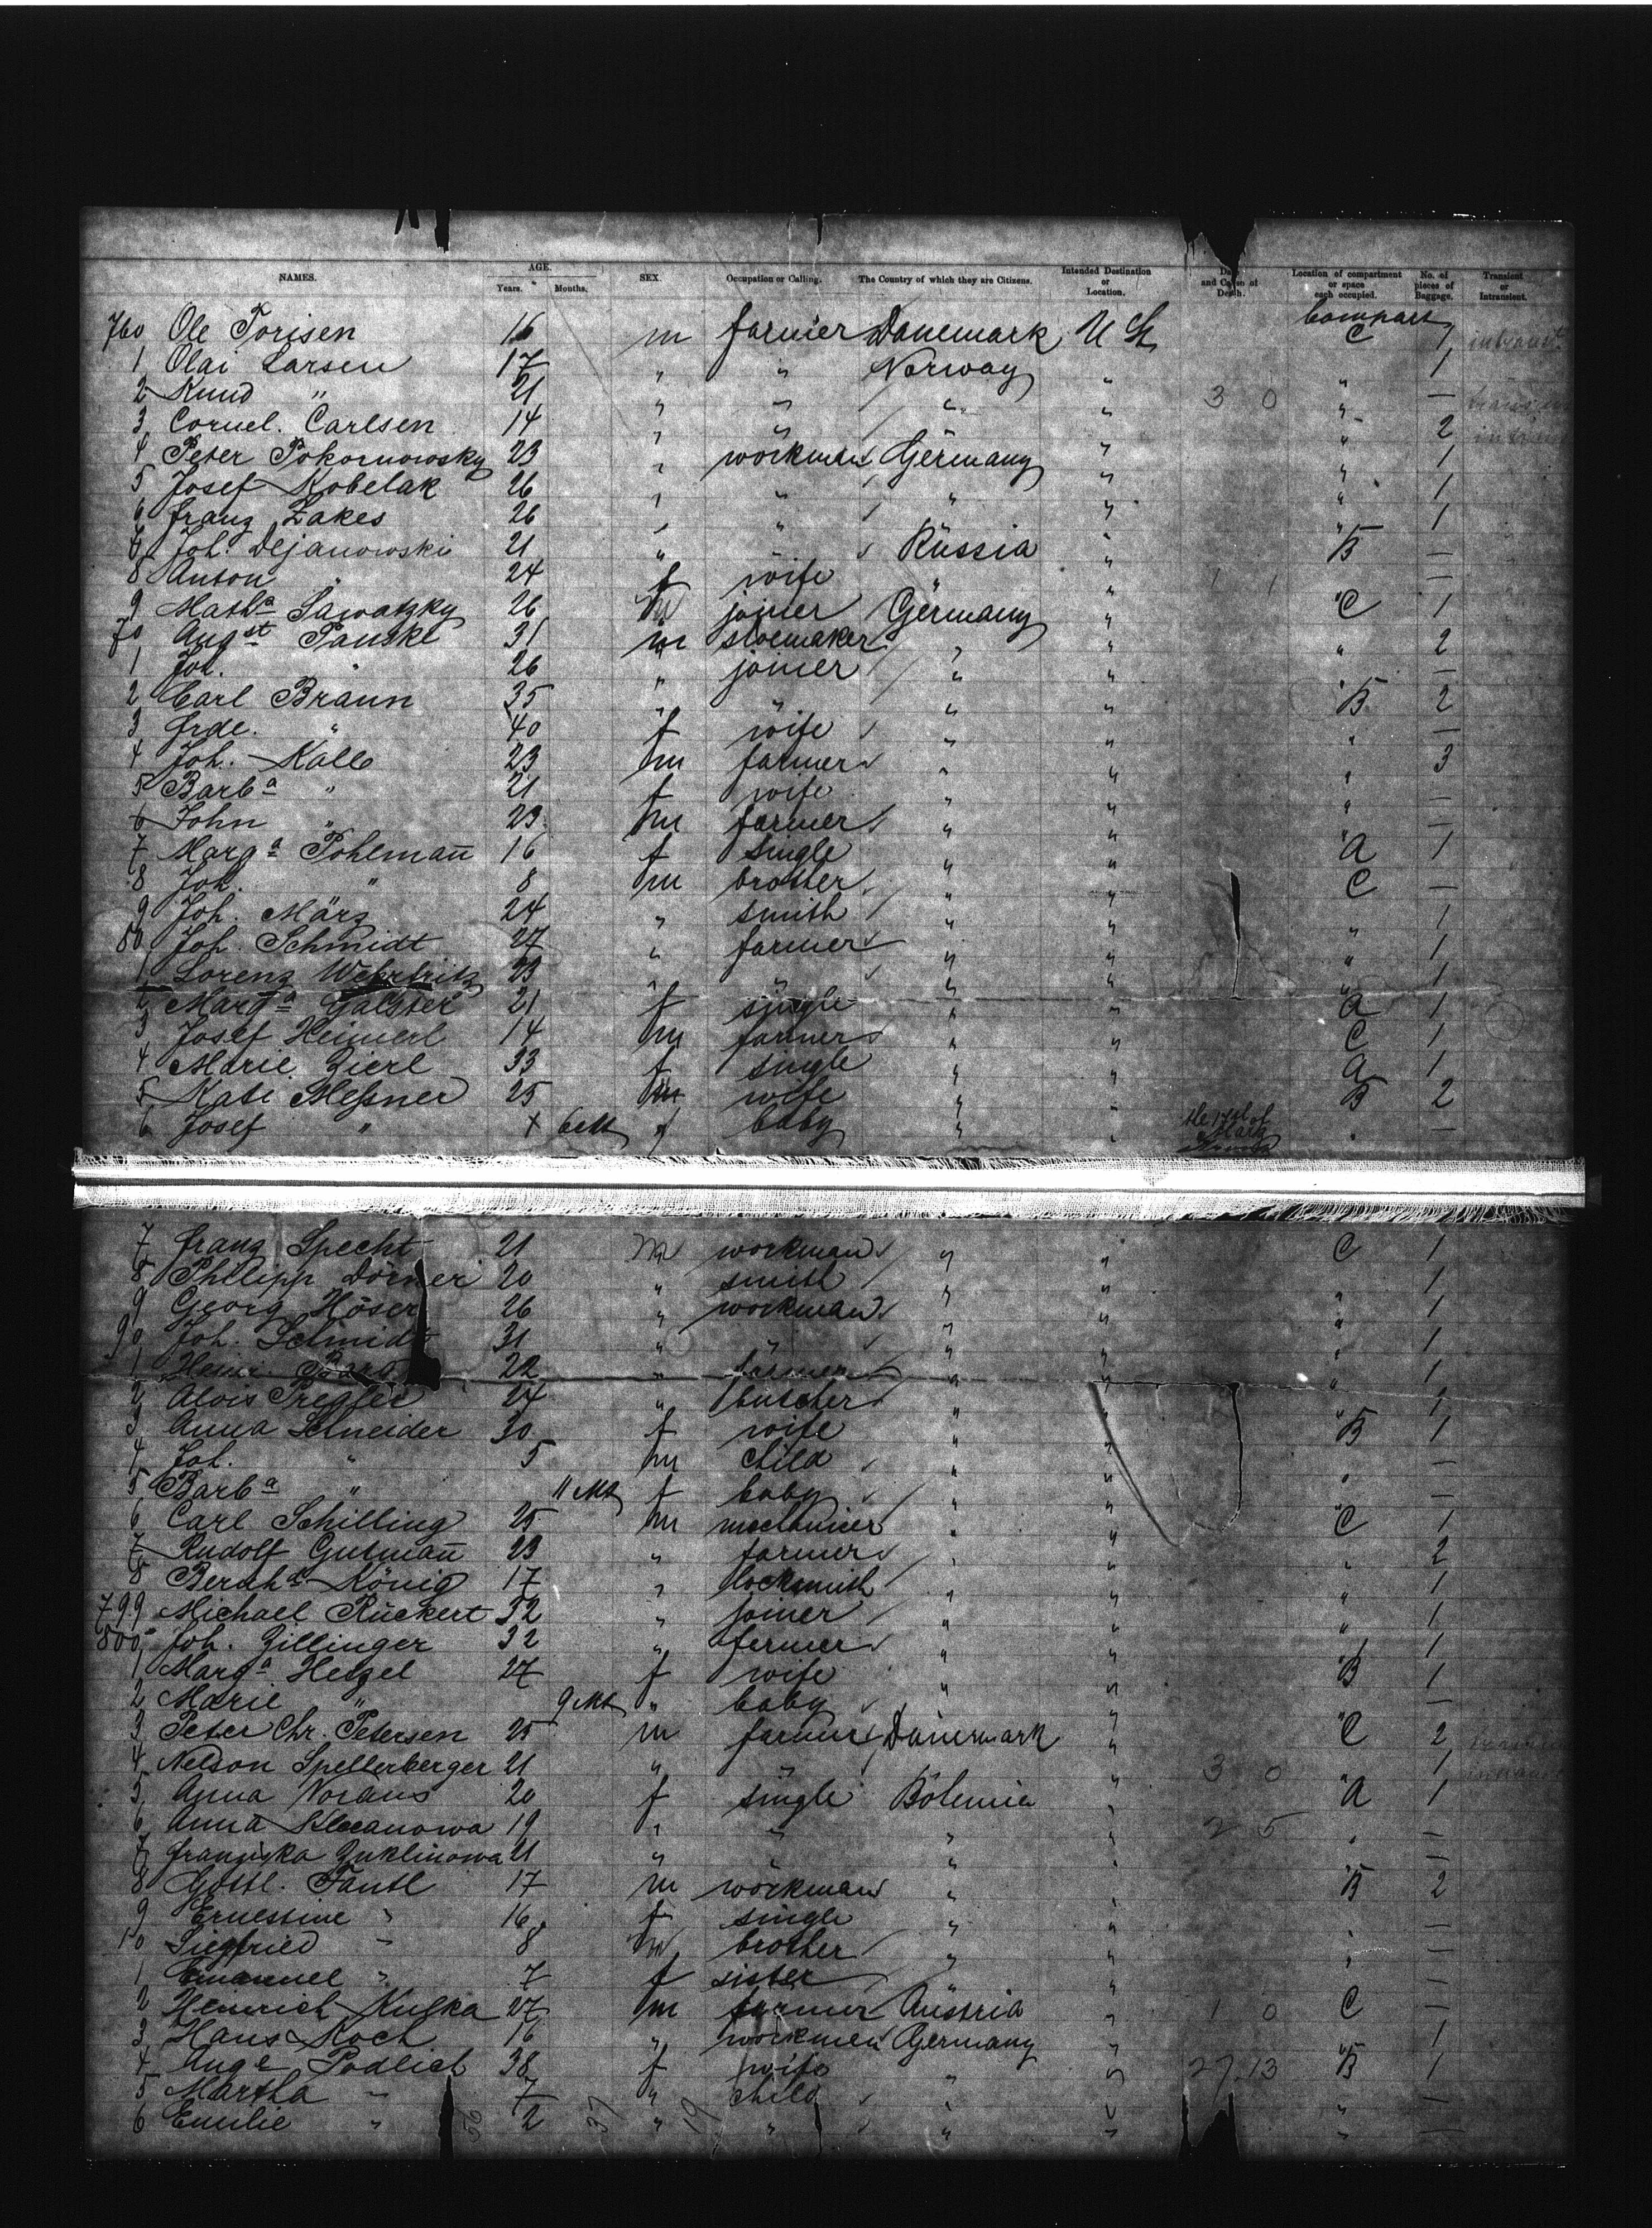 NAMES. AGE. Years. Months. SEX. Occupation or Calling. The Country of which they are Citizens. Intended Destination or Location. Date and Cause of Death. Location of compartment or space each occupied. No. of pieces of Baggage. Transient or Intransient.
Compart
760 Ole Torisen 16 m farmer Danemark U St C 1
1 Olai Larsen 17 " " Norway " " 1
2 Knud " 21 " " " " 3 0 " —
3 Cornel. Carlsen 14 " " " " " 2
4 Peter Pokornowsky 23 " workman Germany " " 1
5 Josef Kobelak 26 " " " " " 1
6 Franz Zakes 26 " " " " " 1
7 Joh. Dejanowski 21 " " Russia " B —
8 Anton " 24 f wife " " 1 1 " —
9 Mathª Sawatzky 26 m joiner Germany " C 1
70 Augst Panske 31 m shoemaker " " " 2
1 Joh. " 26 " joiner " " " —
2 Carl Braun 35 " " " " B 2
3 Frde. " 40 f wife " " " —
4 Joh. Kalb 23 m farmer " " " 3
5 Barbª " 21 f wife " " " —
6 John " 23 m farmer " " " —
7 Margª Pohlmañ 16 f single " " A 1
8 Joh. " 8 m brother " " C —
9 Joh. März 24 " smith " " " 1
80 Joh. Schmidt 27 " farmer " " " 1
1 Lorenz Wehrfritz 23 " " " " " 1
2 Margª Galster 21 f single " " A 1
3 Josef Heimerl 14 m farmer " " C 1
4 Marie Zierl 33 f single " " A 1
5 Kati Meßner 25 m wife " " B 2
6 Josef " + 6 Mt f baby " " " —
7 Franz Specht 21 m workman " " C 1
8 Philipp Dörner 20 " smith " " " 1
9 Georg Höser 26 " workman " " " 1
90 Joh. Schmidt 31 " " " " " 1
1 Heinr. 22 " farmer " " " 1
2 Alois Pregler 24 " butcher " " " 1
3 Anna Schneider 30 f wife " " B 1
4 Joh. " 5 m child " " " —
5 Barbª " 11 Mt f baby " " " —
6 Carl Schilling 25 m mechanicer " " C 1
7 Rudolf Gutmañ 23 " farmer " " " 2
8 Bernhd König 17 " locksmith " " " 1
799 Michael Rückert 32 " joiner " " " 1
800 Joh. Zillinger 32 " farmer " " " 1
1 Margª Hetzel 27 f wife " " B 1
2 Marie " 9 Mt " baby " " " —
3 Peter Chr. Petersen 25 m farmer Danemark " C 2
4 Nelson Spellerberger 21 " " " " 3 0 " 1
5 Anna Norans 20 f single Böhemia " A 1
6 Anna Klecanowa 19 " " " " 2 5 " —
7 Franziska Zuklinowa 21 " " " " " —
8 Gottl. Fantl 17 m workman " " B 2
9 Ernestine " 16 f single " " " —
10 Siegfried " 8 m brother " " " —
1 Emanuel " 7 f sister " " " —
2 Heinrich Kulka 27 m farmer Austria " 1 0 C —
3 Hans Koch 16 " workman Germany " " 1
4 Auge Podlich 38 f wife " " 27.13 B 1
5 Martha " 7 " child " " " —
6 Emilie " 2 " " " " " —